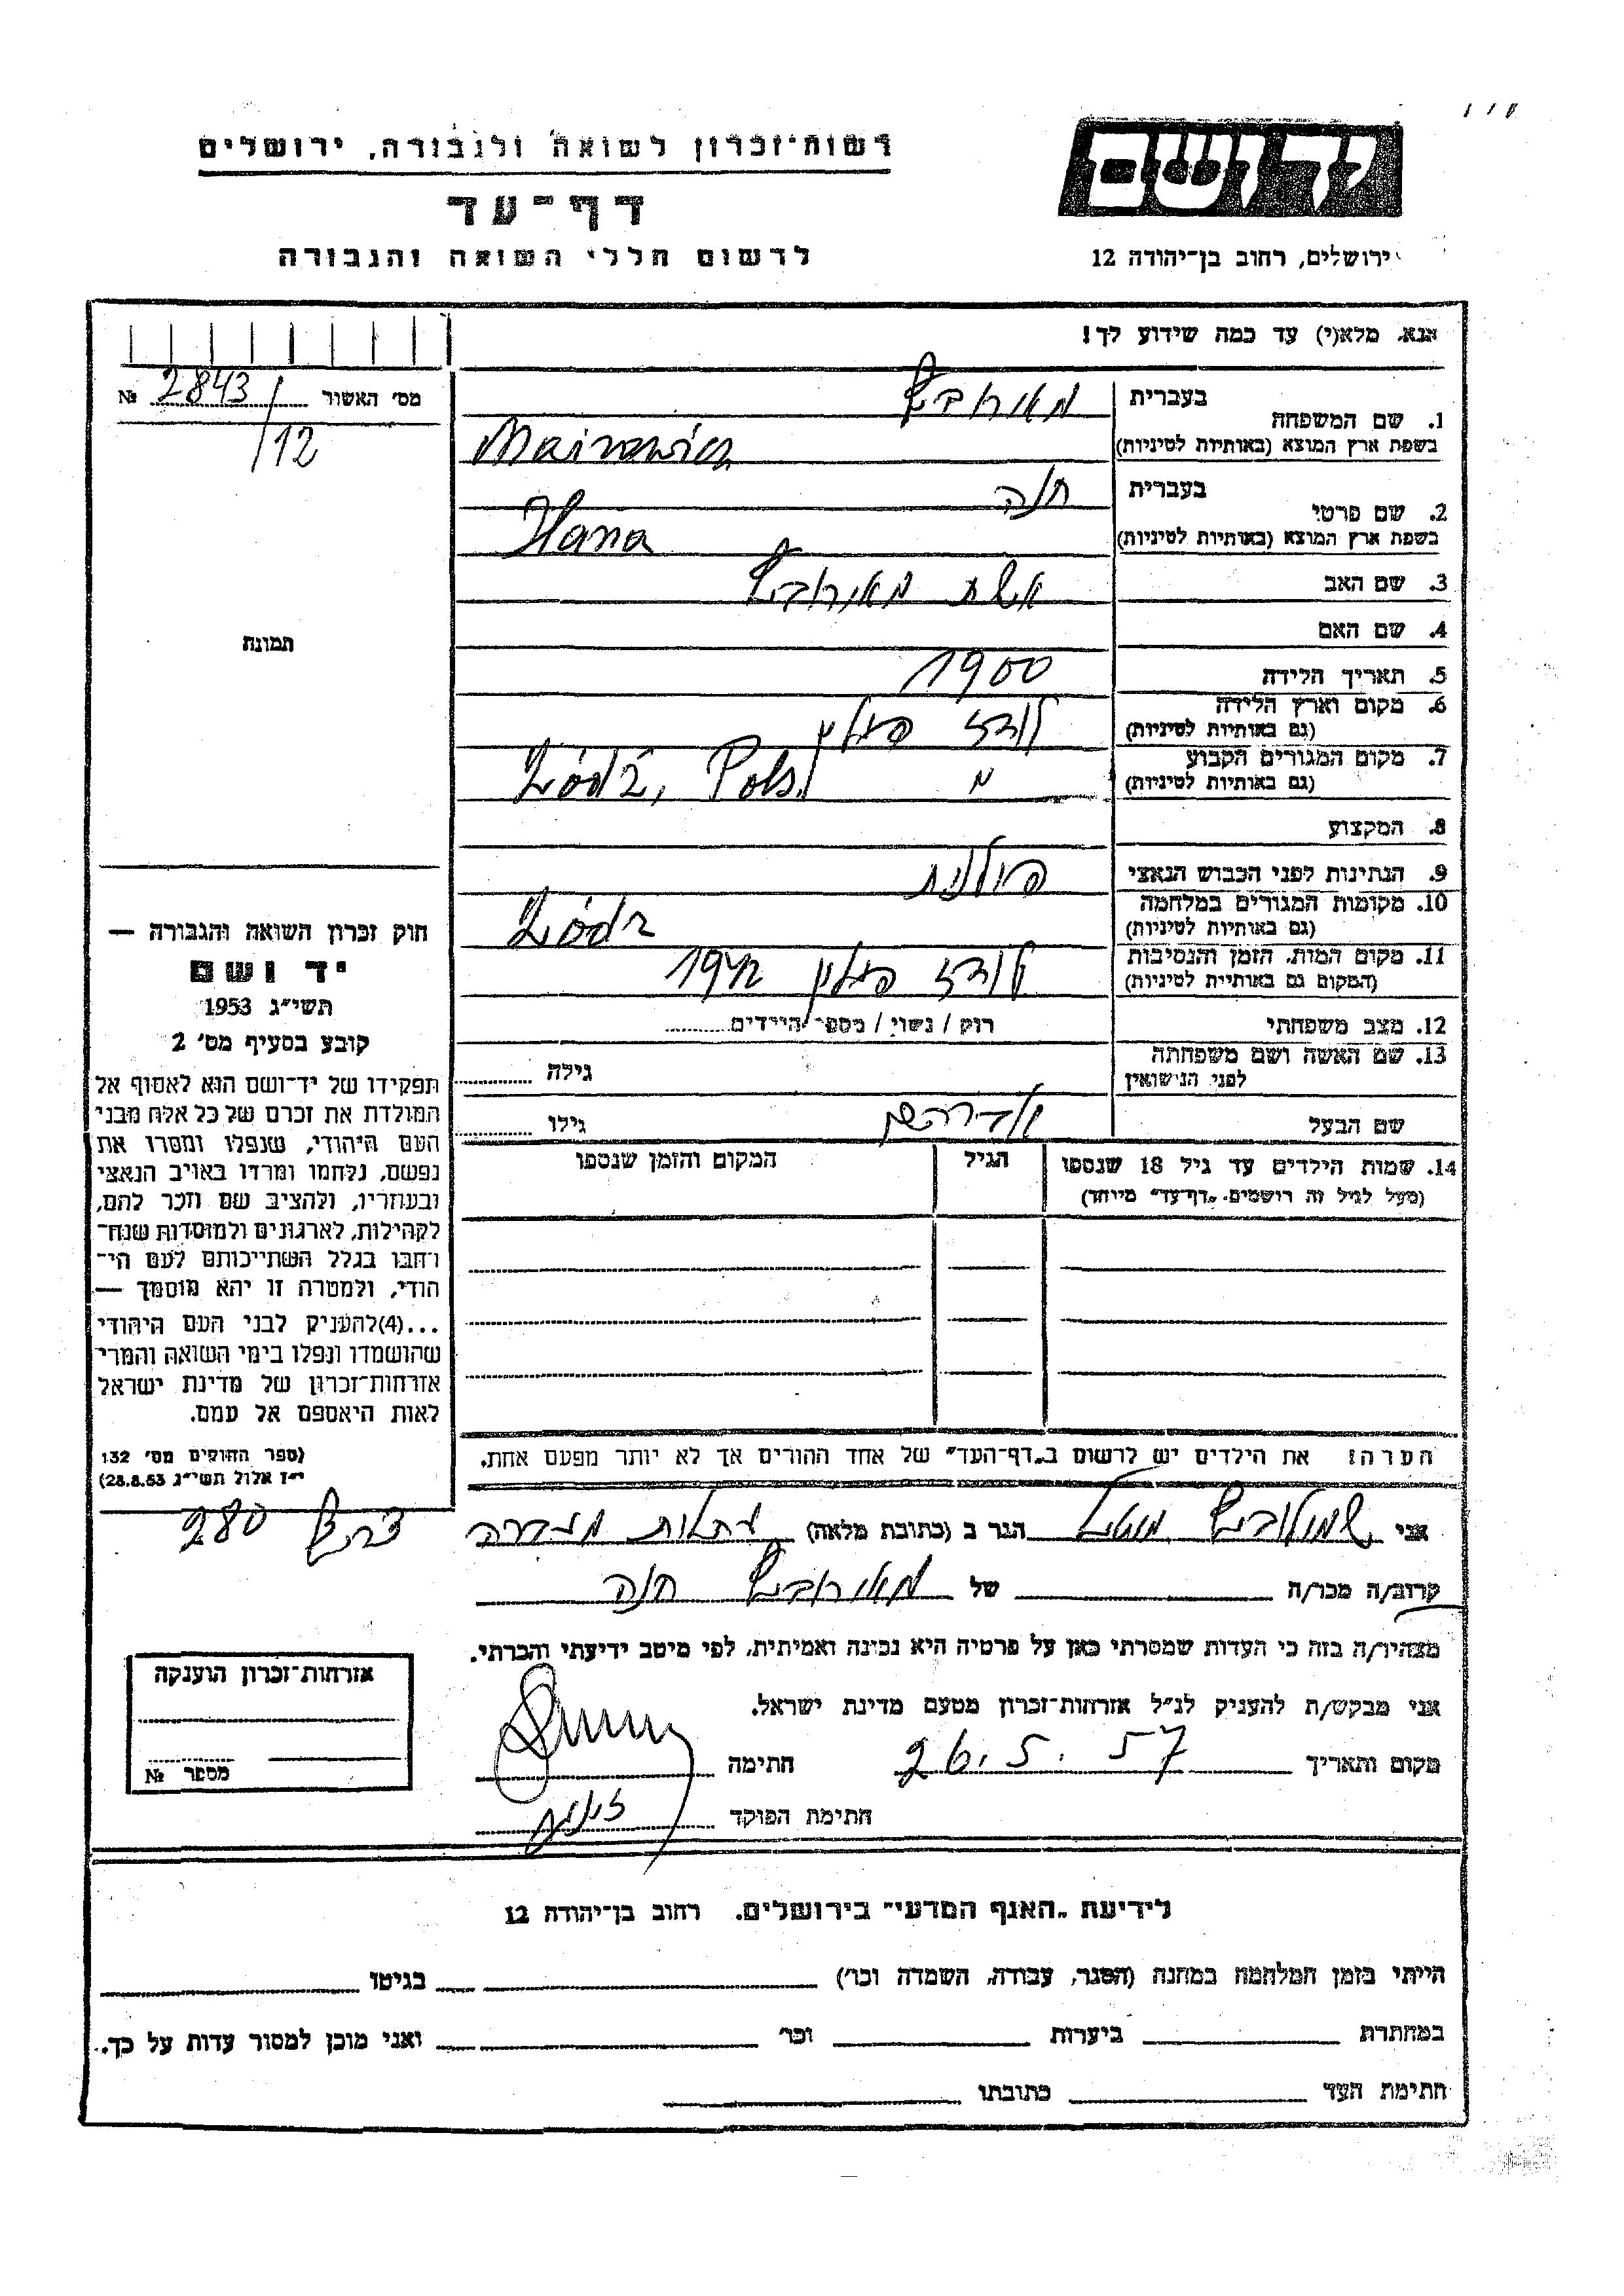 רשות־זכרון לשואה ולגבורה, ירושלים
דף־עד
לרשום חללי השואה והגבורה
יד ושם
ירושלים, רחוב בן־יהודה 12
אנא, מלא(י) עד כמה שידוע לך!
מס׳ האשור № 2843/12
תמונה
1. שם המשפחה
בעברית מאירוביץ
בשפת ארץ המוצא (באותיות לטיניות) Mairowicz
2. שם פרטי
בעברית חנה
בשפת ארץ המוצא (באותיות לטיניות) Hana
3. שם האב אשת מאירוביץ
4. שם האם
5. תאריך הלידה 1900
6. מקום וארץ הלידה
(גם באותיות לטיניות) לודז פולין
7. מקום המגורים הקבוע
(גם באותיות לטיניות) Łódź, Pols.
8. המקצוע
9. הנתינות לפני הכבוש הנאצי פולנית
10. מקומות המגורים במלחמה
(גם באותיות לטיניות) Łódz
11. מקום המות, הזמן והנסיבות
(המקום גם באותיות לטיניות) לודז פולין 1942
12. מצב משפחתי רוק / נשוי / מספר הילדים
13. שם האשה ושם משפחתה
לפני הנישואין
גילה
שם הבעל אברהם גילו
14. שמות הילדים עד גיל 18 שנספו
(מעל לגיל זה רושמים „דף־עד״ מיוחד)
הגיל
המקום והזמן שנספו
הערה: את הילדים יש לרשום ב„דף־העד״ של אחד ההורים אך לא יותר מפעם אחת.
חוק זכרון השואה והגבורה —
יד ושם
תשי״ג 1953
קובע בסעיף מס׳ 2
תפקידו של יד־ושם הוא לאסוף אל
המולדת את זכרם של כל אלה מבני
העם היהודי, שנפלו ומסרו את
נפשם, נלחמו ומרדו באויב הנאצי
ובעוזריו, ולהציב שם וזכר להם,
לקהילות, לארגונים ולמוסדות שנח־
רבו בגלל השתייכותם לעם הי־
הודי, ולמטרה זו יהא מוסמך —
...(4)להעניק לבני העם היהודי
שהושמדו ונפלו בימי השואה והמרי
אזרחות־זכרון של מדינת ישראל
לאות היאספם אל עמם.
(ספר החוקים מס׳ 132
י״ז אלול תשי״ג 28.8.53)
אני שמולוביץ הגר ב (כתובת מלאה) עתלית מעברה צריף 280
קרוב/ה מכר/ה של מאירוביץ חנה
מצהיר/ה בזה כי העדות שמסרתי כאן על פרטיה היא נכונה ואמיתית, לפי מיטב ידיעתי והכרתי.
אני מבקש/ת להעניק לנ״ל אזרחות־זכרון מטעם מדינת ישראל.
מקום ותאריך 26.5.57 חתימה
חתימת הפוקד
אזרחות־זכרון הוענקה
מספר №
לידיעת „האגף המדעי״ בירושלים, רחוב בן־יהודה 12
הייתי בזמן המלחמה במחנה (הסגר, עבודה, השמדה וכו׳) בגיטו
במחתרת ביערות וכו׳ ואני מוכן למסור עדות על כך.
חתימת העד כתובתו